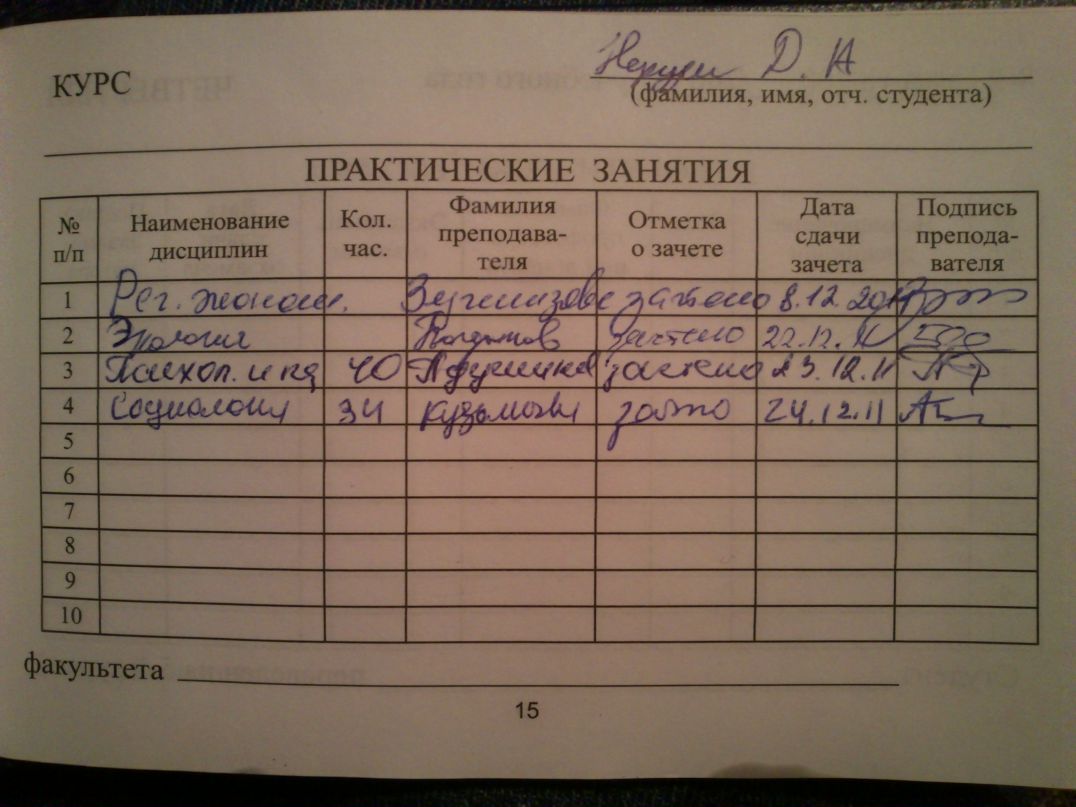 КУРС Д. А
(фамилия, имя, отч. студента)
ПРАКТИЧЕСКИЕ ЗАНЯТИЯ
№ п/п Наименование дисциплин Кол. час. Фамилия преподава- теля Отметка о зачете Дата сдачи зачета Подпись препода- вателя
1 Рег. эконом. зачтено 8.12.2011
2 Экология зачтено 22.12.11
3 Психол. и пед 40 зачтено 23.12.11
4 Социология 34 24.12.11
5
6
7
8
9
10
факультета
15